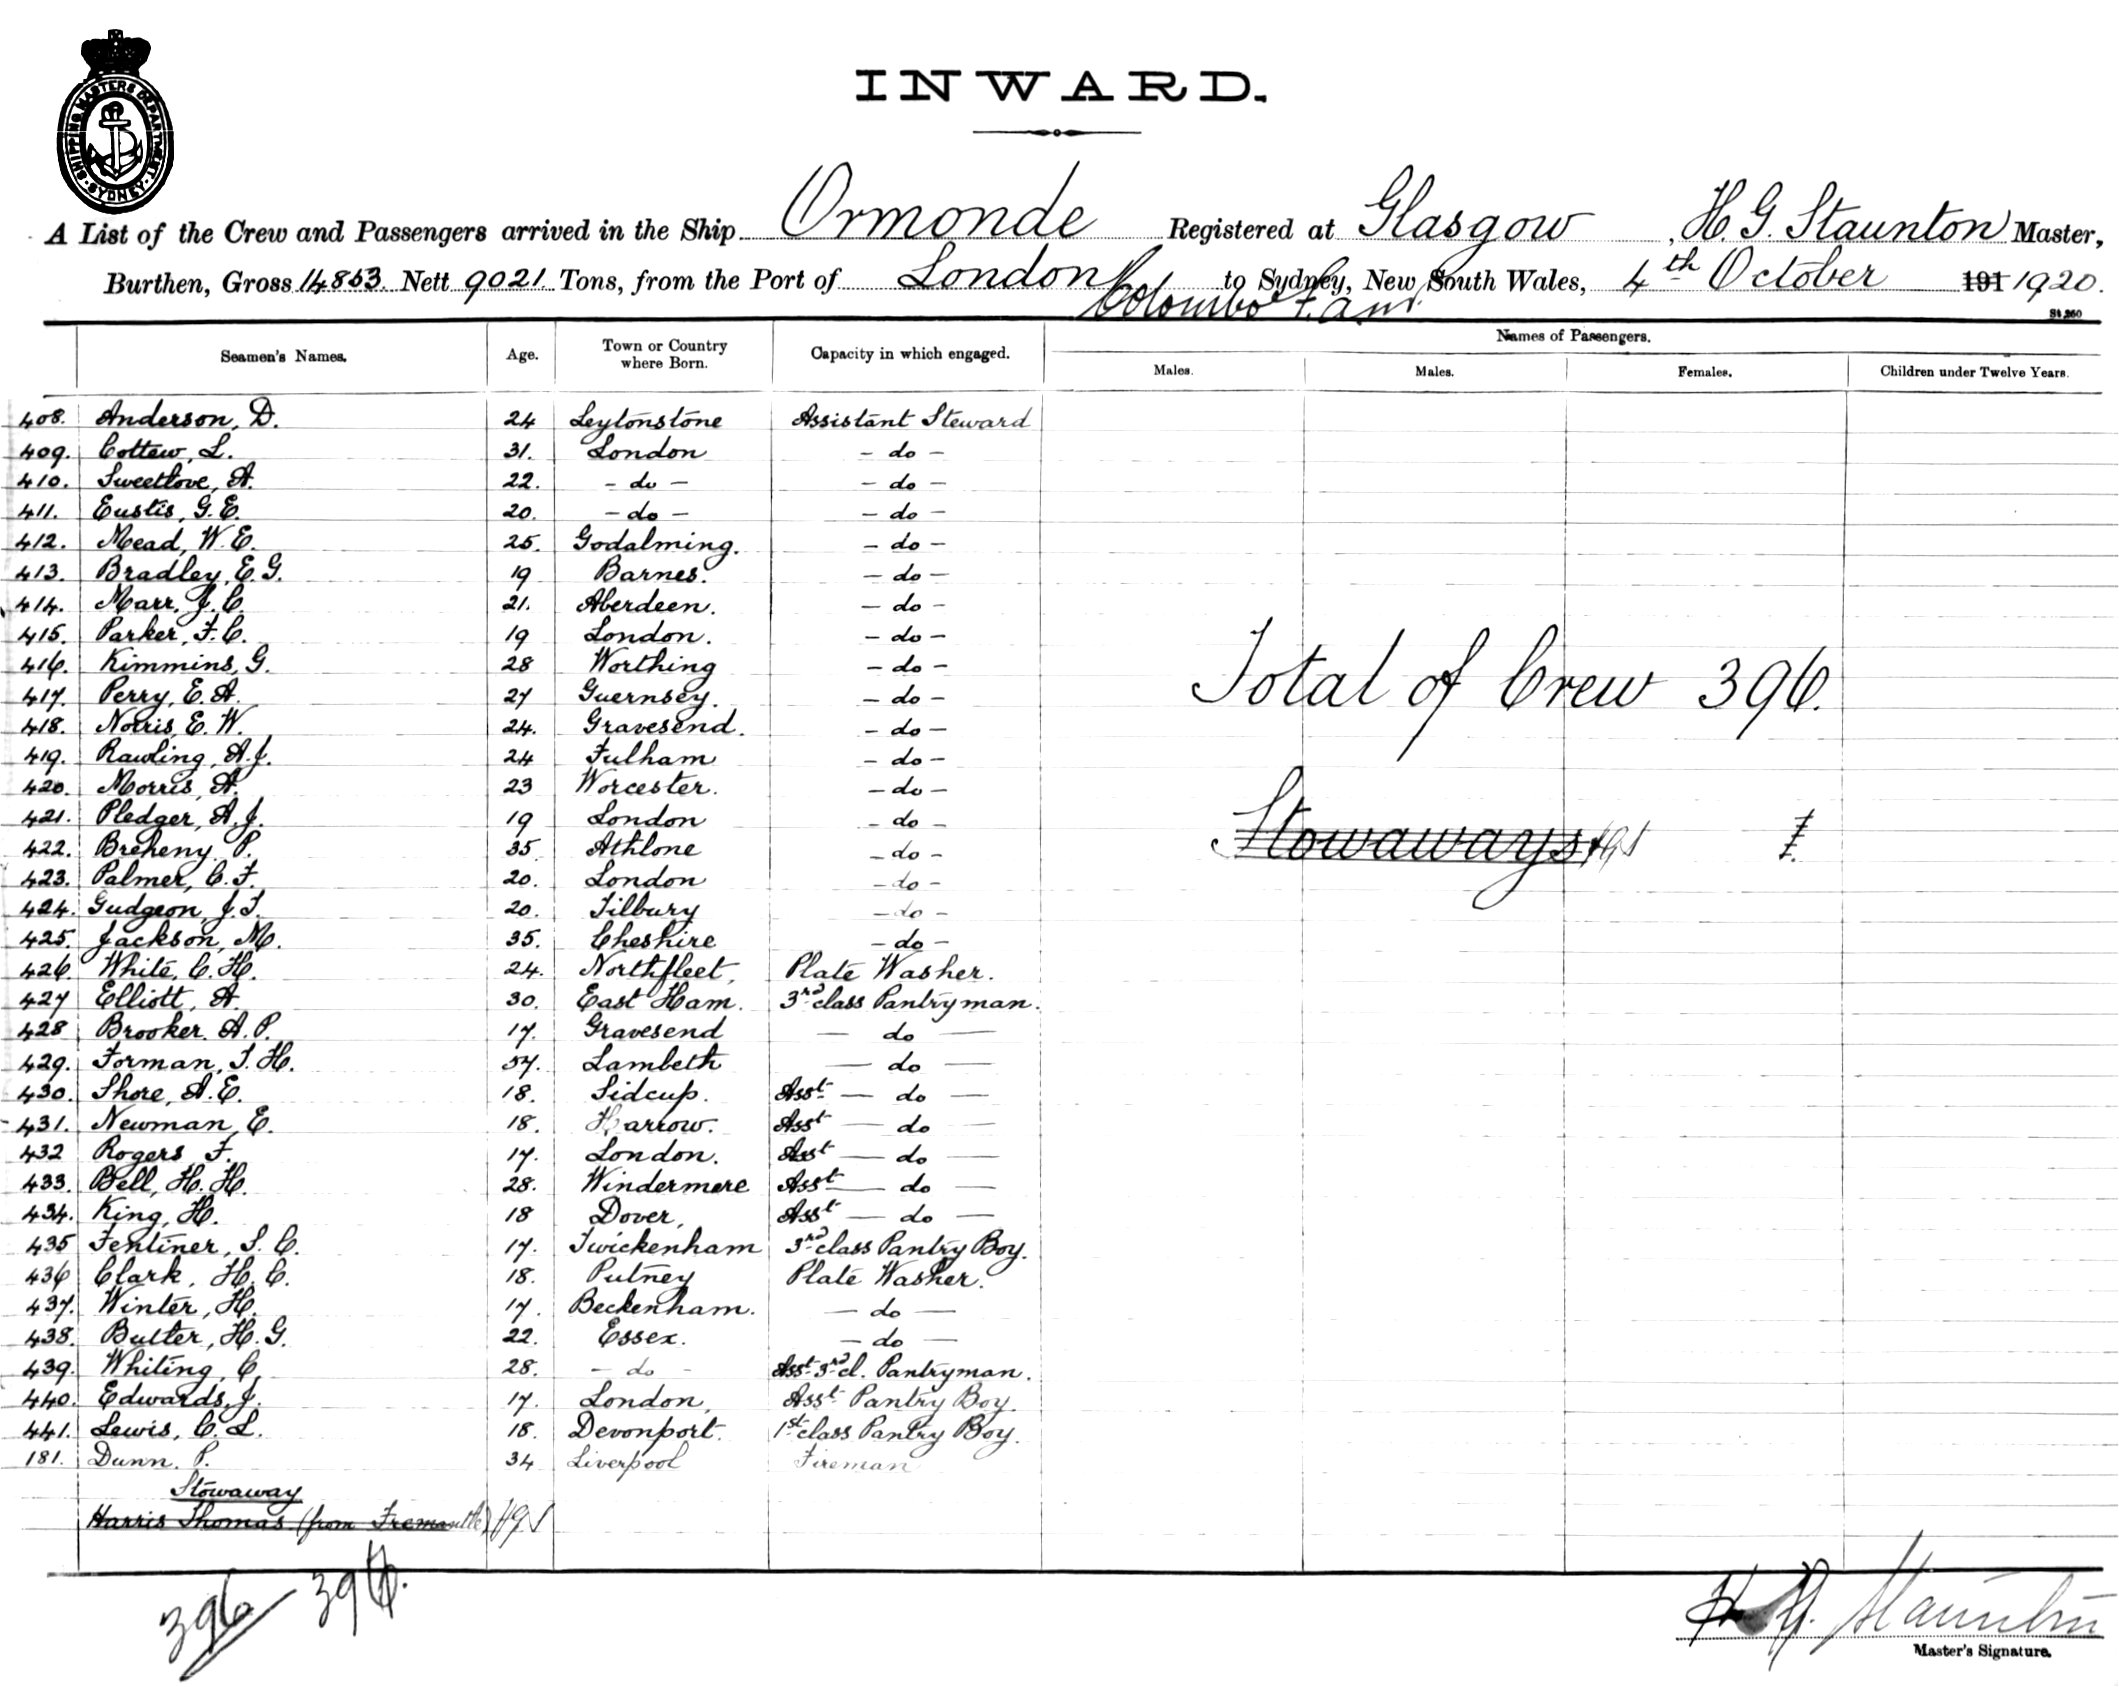 SHIPPING MASTERS DEPARTMENT
SYDNEY
INWARD.
A List of the Crew and Passengers arrived in the Ship Ormonde Registered at Glasgow, H. G. Staunton Master,
Burthen, Gross 14853 Nett 9021 Tons, from the Port of London to Sydney, New South Wales, 4th October 191 1920.
Colombo
Seamen's Names. Age. Town or Country where Born. Capacity in which engaged. Names of Passengers.
Males. Males. Females. Children under Twelve Years.
408. Anderson, D. 24 Leytonstone Assistant Steward
409. Cottew, L. 31. London - do -
410. Sweetlove, A. 22. - do - - do -
411. Eustis, G. E. 20. - do - - do -
412. Mead, W. E. 25. Godalming. - do -
413. Bradley, E. G. 19 Barnes. - do -
414. Marr, J. C. 21. Aberdeen. - do -
415. Parker, F. C. 19 London. - do -
416. Kimmins, G. 28 Worthing - do -
417. Perry, E. A. 27 Guernsey. - do -
418. Norris, E. W. 24. Gravesend. - do -
419. Rawling, A. J. 24 Fulham - do -
420. Morris, A. 23 Worcester. - do -
421. Pledger, A. J. 19 London - do -
422. Breheny P. 35 Athlone - do -
423. Palmer, C. F. 20. London - do -
424. Gudgeon, J. T. 20. Tilbury - do -
425. Jackson, M. 35. Cheshire - do -
426. White, C. H. 24. Northfleet, Plate Washer.
427 Elliott, A. 30. East Ham. 3rd class Pantryman.
428 Brooker. A. P. 17. Gravesend - do -
429. Forman, T. H. 57. Lambeth - do -
430. Shore, A. E. 18. Sidcup. Asst - do -
431. Newman, E. 18. Harrow. Asst - do -
432 Rogers F. 17. London. Asst - do -
433. Bell, H. H. 28. Windermere Asst - do -
434. King, H. 18 Dover, Asst - do -
435 Fentiner, S. C. 17. Twickenham 3rd class Pantry Boy.
436 Clark, H. C. 18. Putney Plate Washer.
437. Winter, H. 17. Beckenham. - do -
438. Butter, H. G. 22. Essex. - do -
439. Whiting, C. 28. - do - Asst 3rd cl. Pantryman.
440. Edwards, J. 17. London, Asst Pantry Boy.
441. Lewis, C. L. 18. Devonport. 1st class Pantry Boy.
181. Dunn. P. 34 Liverpool Fireman
Stowaway
Harris Thomas (from Fremantle) HGS
Total of Crew 396.
Stowaways HGS
396 396.
H. G. Staunton
Master's Signature.